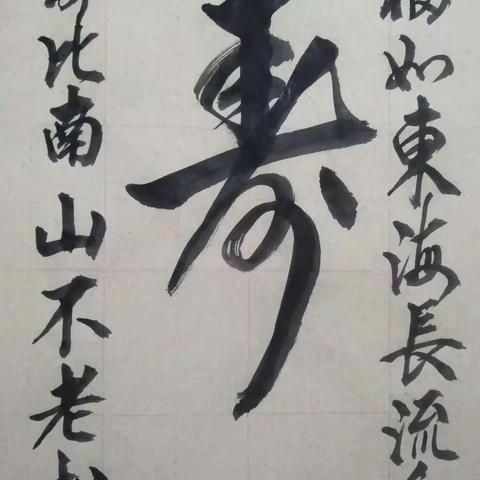 福如東海長流
寿
比南山不老